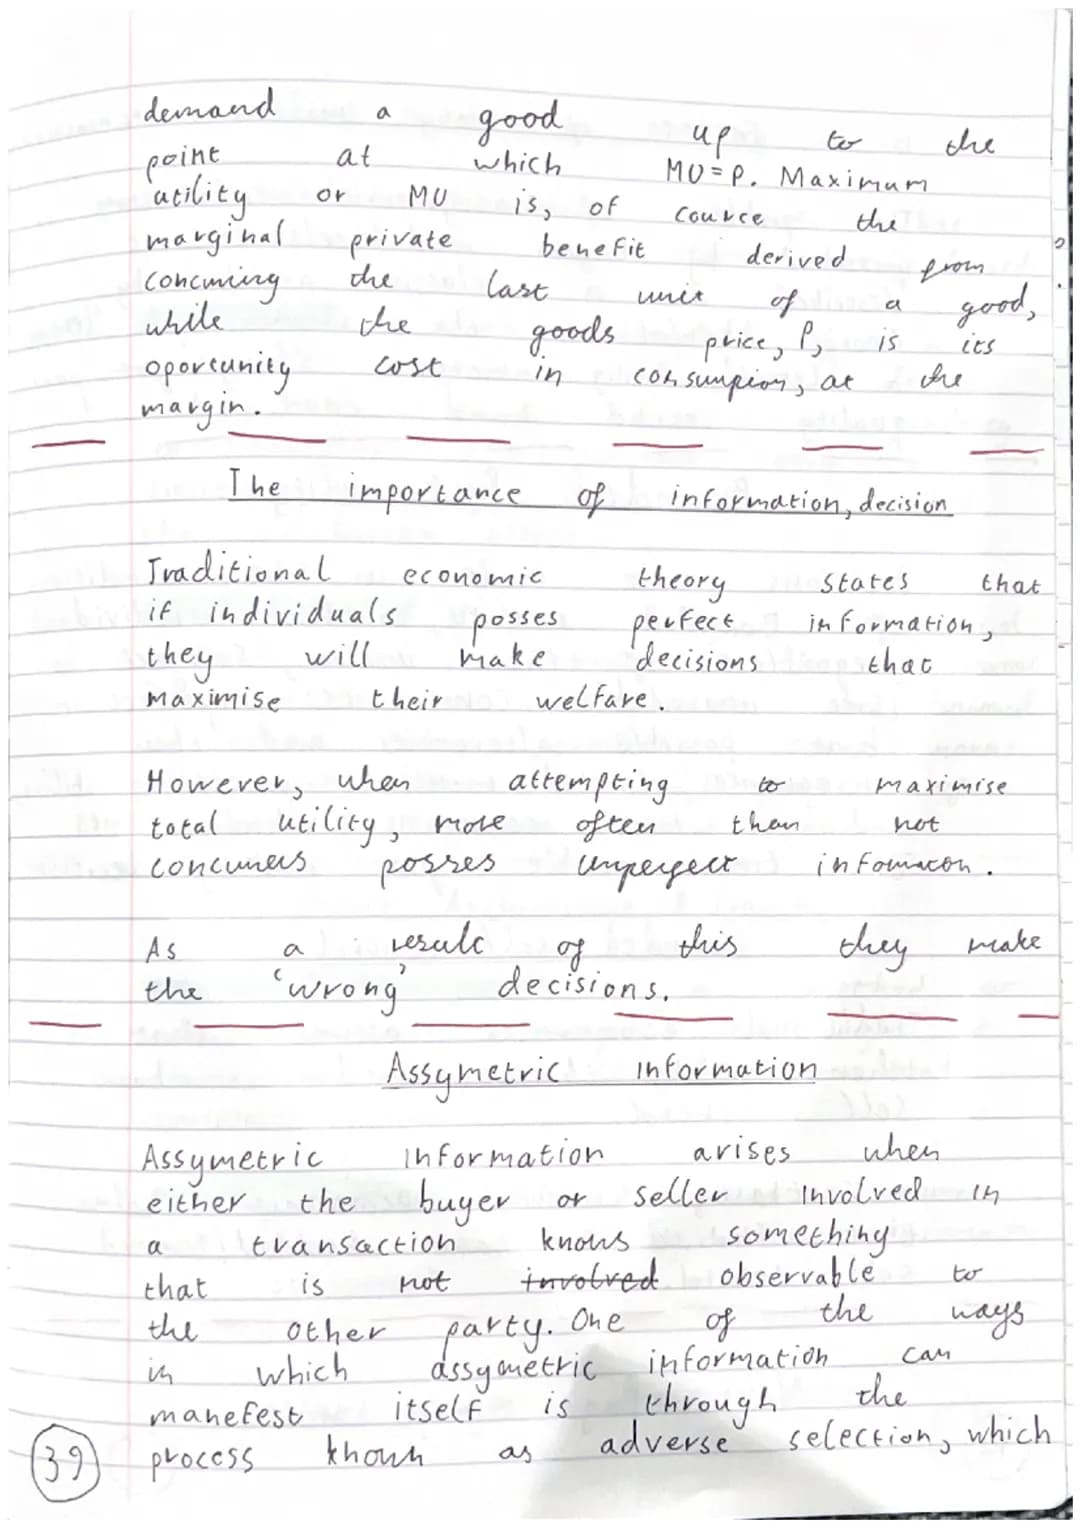 demand a good up to the
point at which MU=P. Maximum
utility or MU is, of cource the
marginal private benefit derived from
concuming the last unit of a good,
while the goods price, P, is its
oportunity cost in consumpion, at the
margin.
The importance of information, decision
Traditional economic theory states that
if individuals posses perfect information,
they will make decisions that
maximise their welfare.
However, when attempting to maximise
total utility, more often than not
concumers posses unperfect infomacon.
As a result of this they make
the 'wrong' decisions.
Assymetric information
Assymetric information arises when
either the buyer or seller involved in
a transaction knows something
that is not involved observable to
the other party. One of the ways
in which assymetric information can
manefest itself is through the
process known as adverse selection, which
39